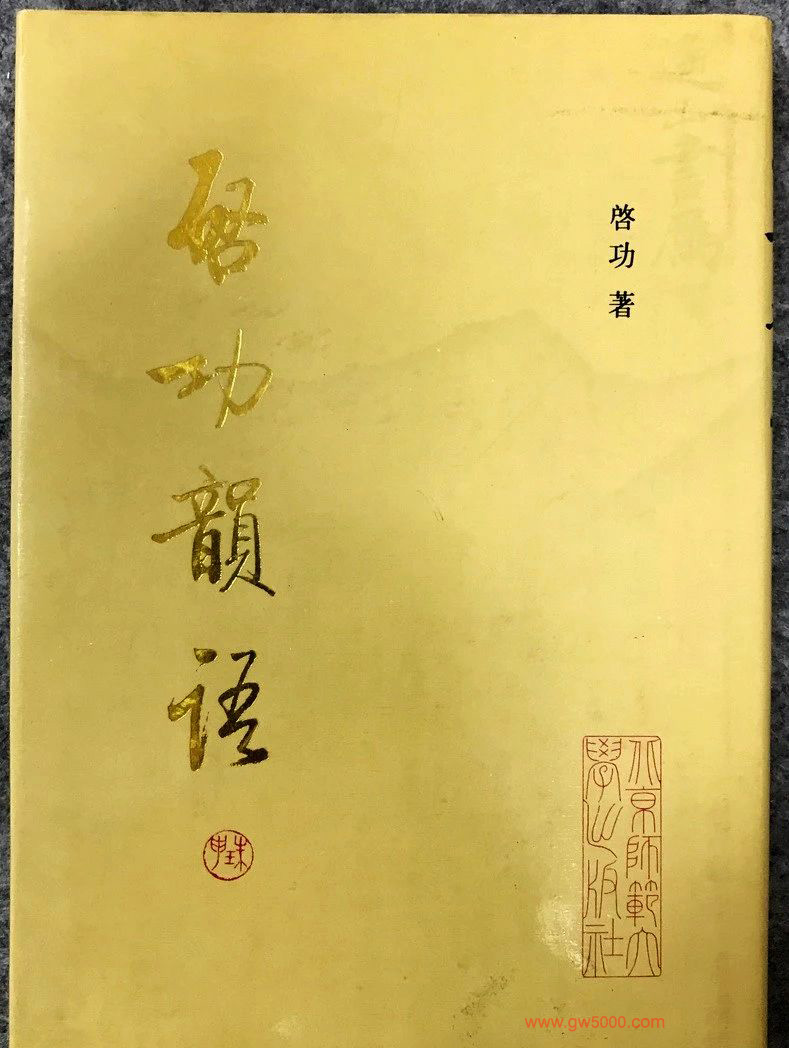 啓功著
啓功韻語
北京師範大
學出版社
www.gw5000.com